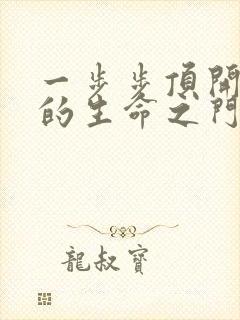 一步步頂開
的生命之門
龍叔寶